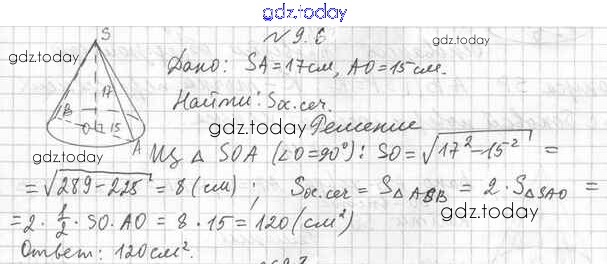 gdz.today
№ 9.6
gdz.today
S
gdz.today
Дано: SA = 17см, AO = 15см.
17
Найти: Sос.сеч.
B
O 15
gdz.today
Решение
A
gdz.today
Из △ SOA (∠O = 90°): SO = √17² - 15² =
= √289 - 225 = 8 (см); Sос.сеч = S△ASB = 2 · S△SAO =
= 2 · 1/2 · SO · AO = 8 · 15 = 120 (см²)
gdz.today
Ответ: 120см².